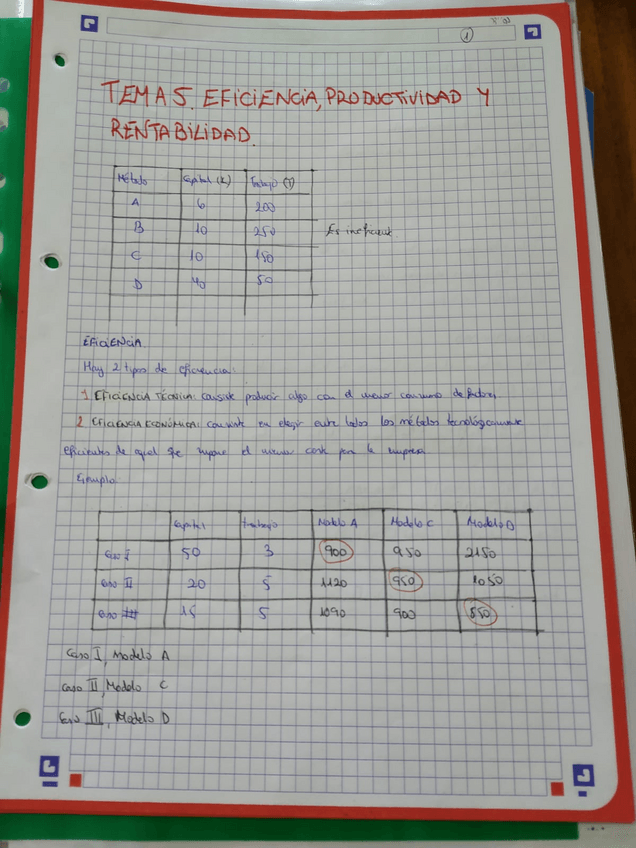 1
TEMA 5. EFICIENCIA, PRODUCTIVIDAD Y
RENTABILIDAD.
Método Capital (K) Trabajo (T)
A 6 200
B 10 250 Es ineficiente
C 10 150
D 40 50
EFICIENCIA.
Hay 2 tipos de eficiencia:
1 EFICIENCIA TÉCNICA: consiste producir algo con el menor consumo de factores
2 EFICIENCIA ECONÓMICA: consiste en elegir entre todos los métodos tecnológicamente
eficientes de aquel que supone el menor coste para la empresa
Ejemplo:
Capital trabajo Modelo A Modelo C Modelo D
Caso I 50 3 900 950 2150
Caso II 20 5 1120 950 1050
Caso III 15 5 1090 900 850
Caso I, Modelo A
Caso II, Modelo C
Caso III, Modelo D